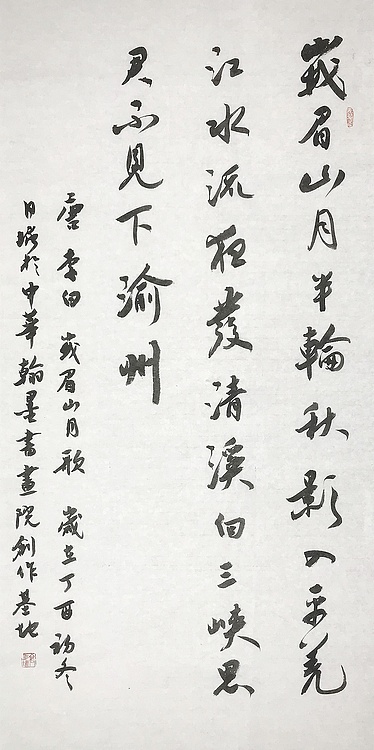 峩眉山月半輪秋影入平羌
江水流夜發清溪向三峽思
君不見下渝州
唐李白峩眉山月歌歲在丁酉初冬
日瑞於中華翰墨書畫院創作基地